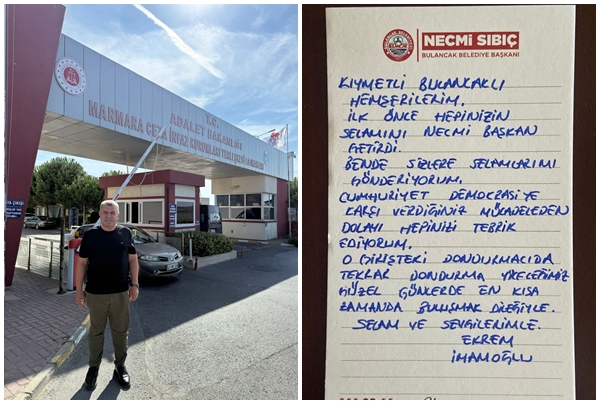 T.C.
ADALET BAKANLIĞI
MARMARA CEZA İNFAZ KURUMLARI
NECMİ SIBIÇ
BULANCAK BELEDİYE BAŞKANI
KIYMETLİ BULANCAKLI
HEMŞERİLERİM.
İLK ÖNCE HEPİNİZİN
SELAMINI NECMİ BAŞKAN
GETİRDİ.
BENDE SİZLERE SELAMLARIMI
GÖNDERİYORUM.
CUMHURİYET DEMOKRASİYE
KARŞI VERDİĞİNİZ MÜCADELEDEN
DOLAYI HEPİNİZİ TEBRİK
EDİYORUM.
O GİRİŞTEKİ DONDURMACIDA
TEKRAR DONDURMA YİYECEĞİMİZ
GÜZEL GÜNLERDE EN KISA
ZAMANDA BULUŞMAK DİLEĞİYLE.
SELAM VE SEVGİLERİMLE.
EKREM
İMAMOĞLU